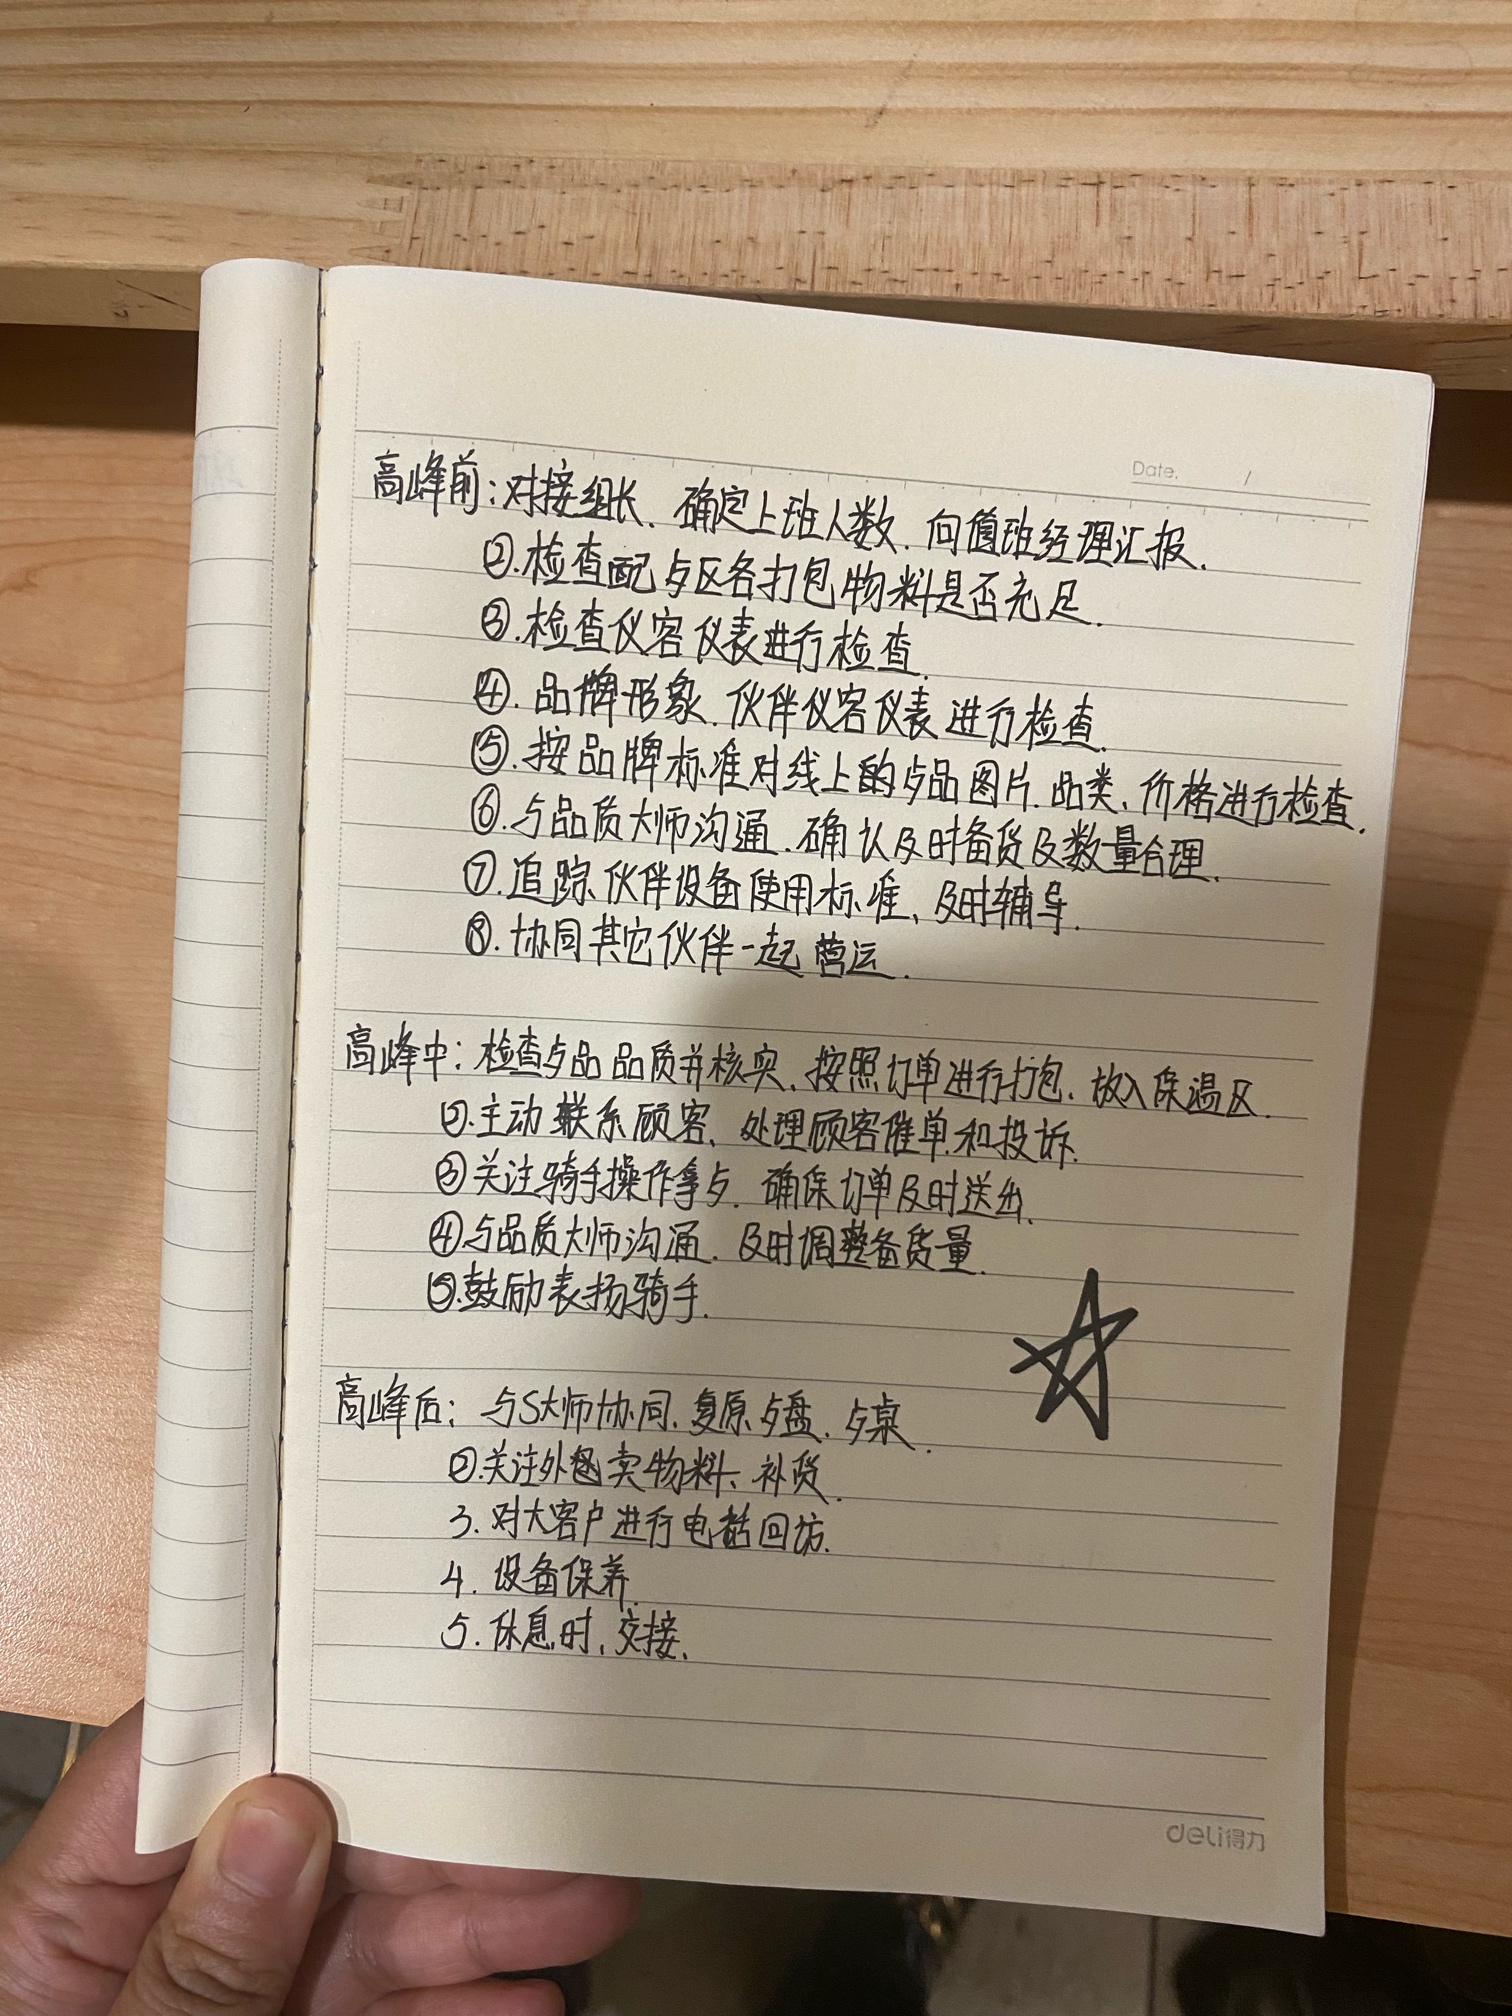 Date. /
高峰前:对接组长、确定上班人数、向值班经理汇报.
②.检查配歺区各打包物料是否充足.
③.检查仪容仪表进行检查.
④.品牌形象、伙伴仪容仪表进行检查.
⑤.按品牌标准对线上的歺品图片、品类、价格进行检查.
⑥.与品质大师沟通、确认及时备货及数量合理.
⑦.追踪伙伴设备使用标准、及时辅导.
⑧.协同其它伙伴一起营运.
高峰中:检查歺品品质并核实、按照订单进行打包、放入保温区.
②.主动联系顾客、处理顾客催单和投诉.
③关注骑手操作拿歺、确保订单及时送出.
④与品质大师沟通、及时调整备货量.
⑤.鼓励表扬骑手.
高峰后:与S大师协同、复原歺盘、歺桌.
②.关注外卖物料、补货.
3.对大客户进行电话回访.
4.设备保养.
5.休息时、交接、
deli得力